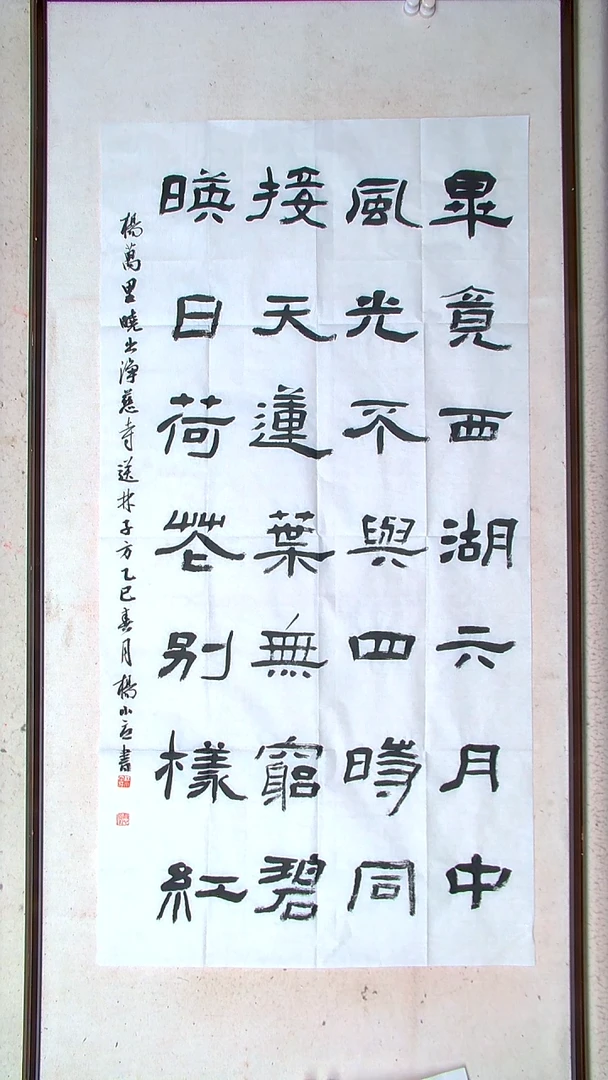 畢竟西湖六月中
風光不與四時同
接天蓮葉無窮碧
暎日荷花別樣紅
楊萬里曉出淨慈寺送林子方乙巳春月楊小書